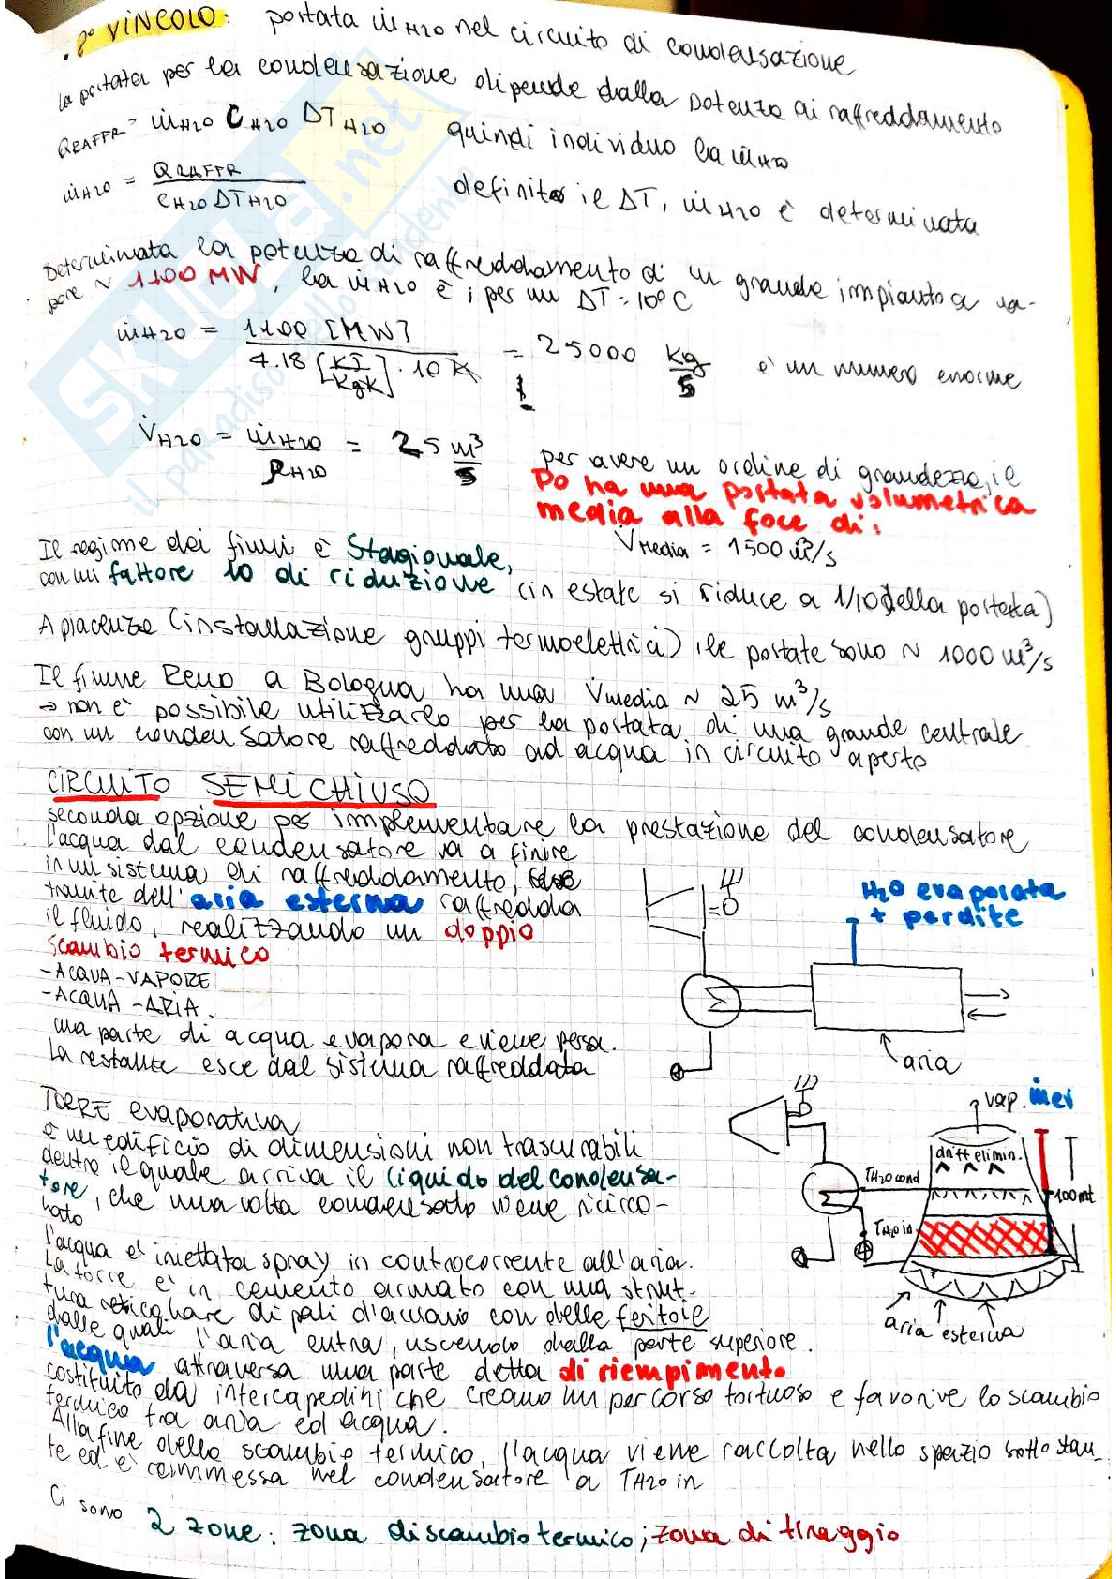 . 8° VINCOLO: portata ṁH2O nel circuito di condensazione
la portata per la condensazione dipende dalla potenza di raffreddamento
QRAFFR = ṁH2O CH2O ΔTH2O quindi individuo la ṁH2O
ṁH2O = QRAFFR / CH2O ΔTH2O definito il ΔT, ṁH2O è determinata
Determinata la potenza di raffreddamento di un grande impianto a va-
pore ~ 1100 MW, la ṁH2O è, per un ΔT = 10°C
ṁH2O = 1100 [MW] / 4.18 [KJ/KgK] · 10 K = 25000 Kg/s è un numero enorme
V̇H2O = ṁH2O / ρH2O = 25 m³/s per avere un ordine di grandezza, il
Po ha una portata volumetrica
media alla foce di:
V̇Media = 1500 m³/s
Il regime dei fiumi è Stagionale,
con un fattore 10 di riduzione (in estate si riduce a 1/10 della portata)
A piacenza (installazione gruppi termoelettrici) le portate sono ~ 1000 m³/s
Il fiume Reno a Bologna ha una V̇media ~ 25 m³/s
→ non è possibile utilizzarlo per la portata di una grande centrale
con un condensatore raffreddato ad acqua in circuito aperto
CIRCUITO SEMICHIUSO
seconda opzione per implementare la prestazione del condensatore
l'acqua dal condensatore va a finire
in un sistema di raffreddamento,
tramite dell'aria esterna raffredda
il fluido, realizzando un doppio
scambio termico
-ACQUA-VAPORE
-ACQUA-ARIA.
una parte di acqua evapora e viene persa.
La restante esce dal sistema raffreddata
H2O evaporata
+ perdite
aria
TORRE evaporativa
è un edificio di dimensioni non trascurabili
dentro il quale arriva il liquido del condensa-
tore, che una volta condensato viene ricirco-
lato
l'acqua è iniettata spray in controcorrente all'aria.
La torre è in cemento armato con una strut-
tura reticolare di pali d'acciaio con delle feritoie
dalle quali l'aria entra, uscendo dalla parte superiore.
vap.
drift elimin.
TH2O cond
TH2O in
100mt
aria esterna
l'acqua attraversa una parte detta di riempimento
costituito da intercapedini che creano un percorso tortuoso e favorire lo scambio
termico tra aria ed acqua.
Alla fine dello scambio termico, l'acqua viene raccolta nello spazio sottostan-
te ed è rimmessa nel condensatore a TH2O in
Ci sono 2 zone: zona di scambio termico; zona di tiraggio
SKUOLA.net